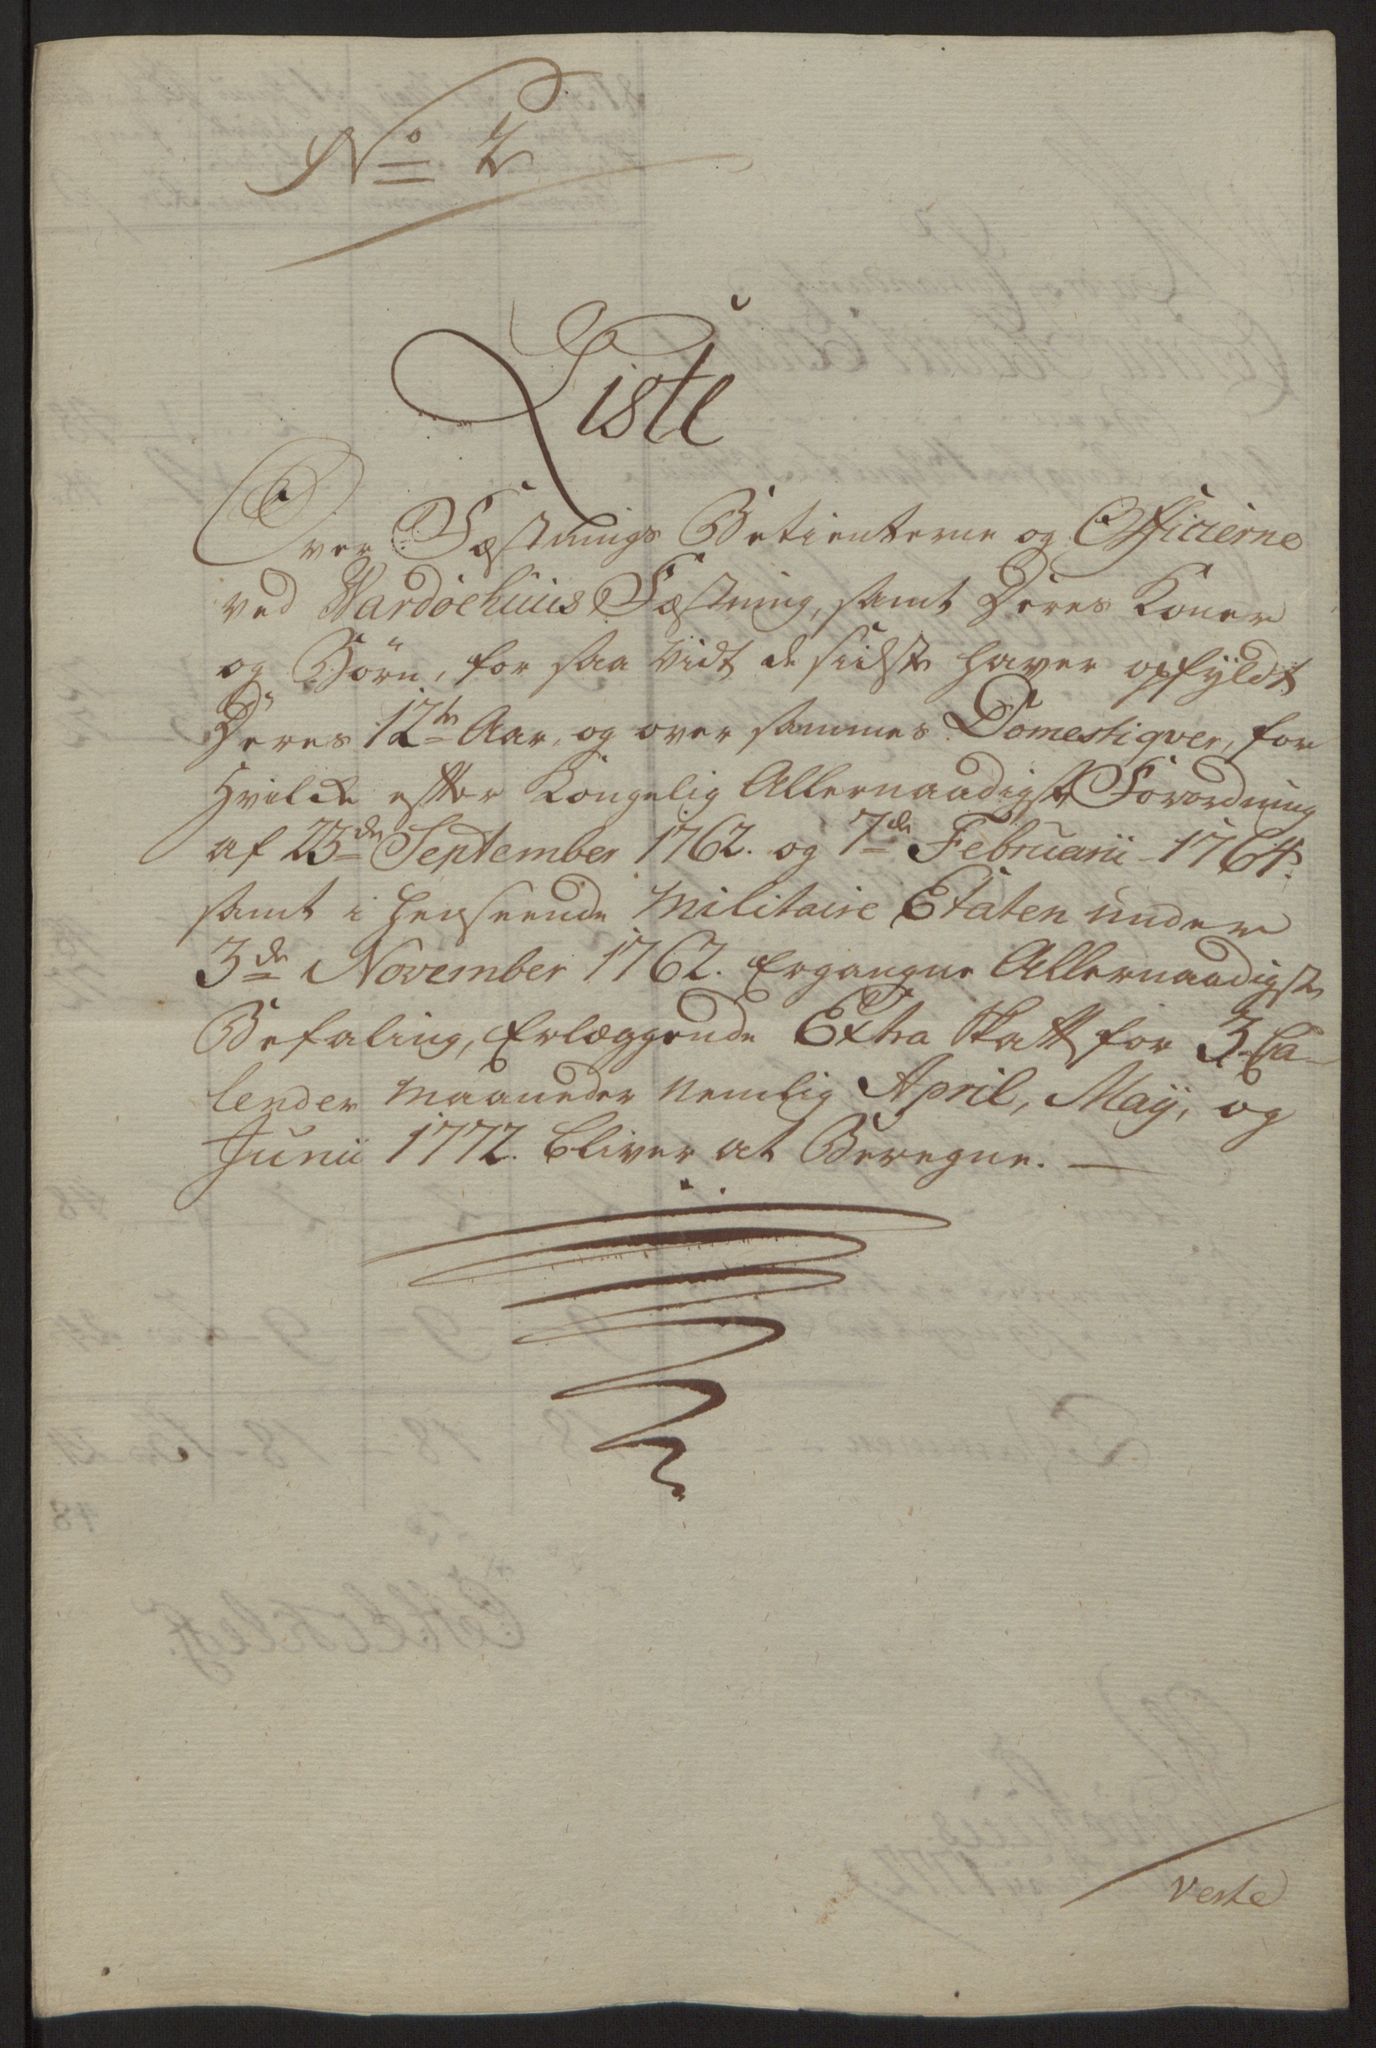 No 2
Liste
Over Fæstnings Betienterne og Officierne
ved Wardöehuus Fæstning, samt Deres Koner
og Börn, for saa vidt de sidste haver opfyldt
Deres 12te Aar, og over sammes Domestiqver, for
Hvilcke efter Kongelig Allernaadigste Forordning
af 23de September 1762. og 7de Februarii 1764.
samt i henseende Militaire Etaten under
3de November 1762. Ergangne Allernaadigste
Befaling, Erlæggende Extra Skatt for 3 Ca-
lender Maaneder Nemlig April, Maij, og
Junii 1772. bliver at Beregne. —
Verte